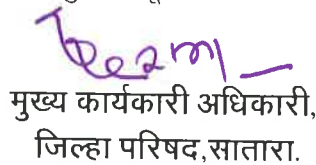 मुख्य कार्यकारी अधिकारी,
जिल्हा परिषद,सातारा.